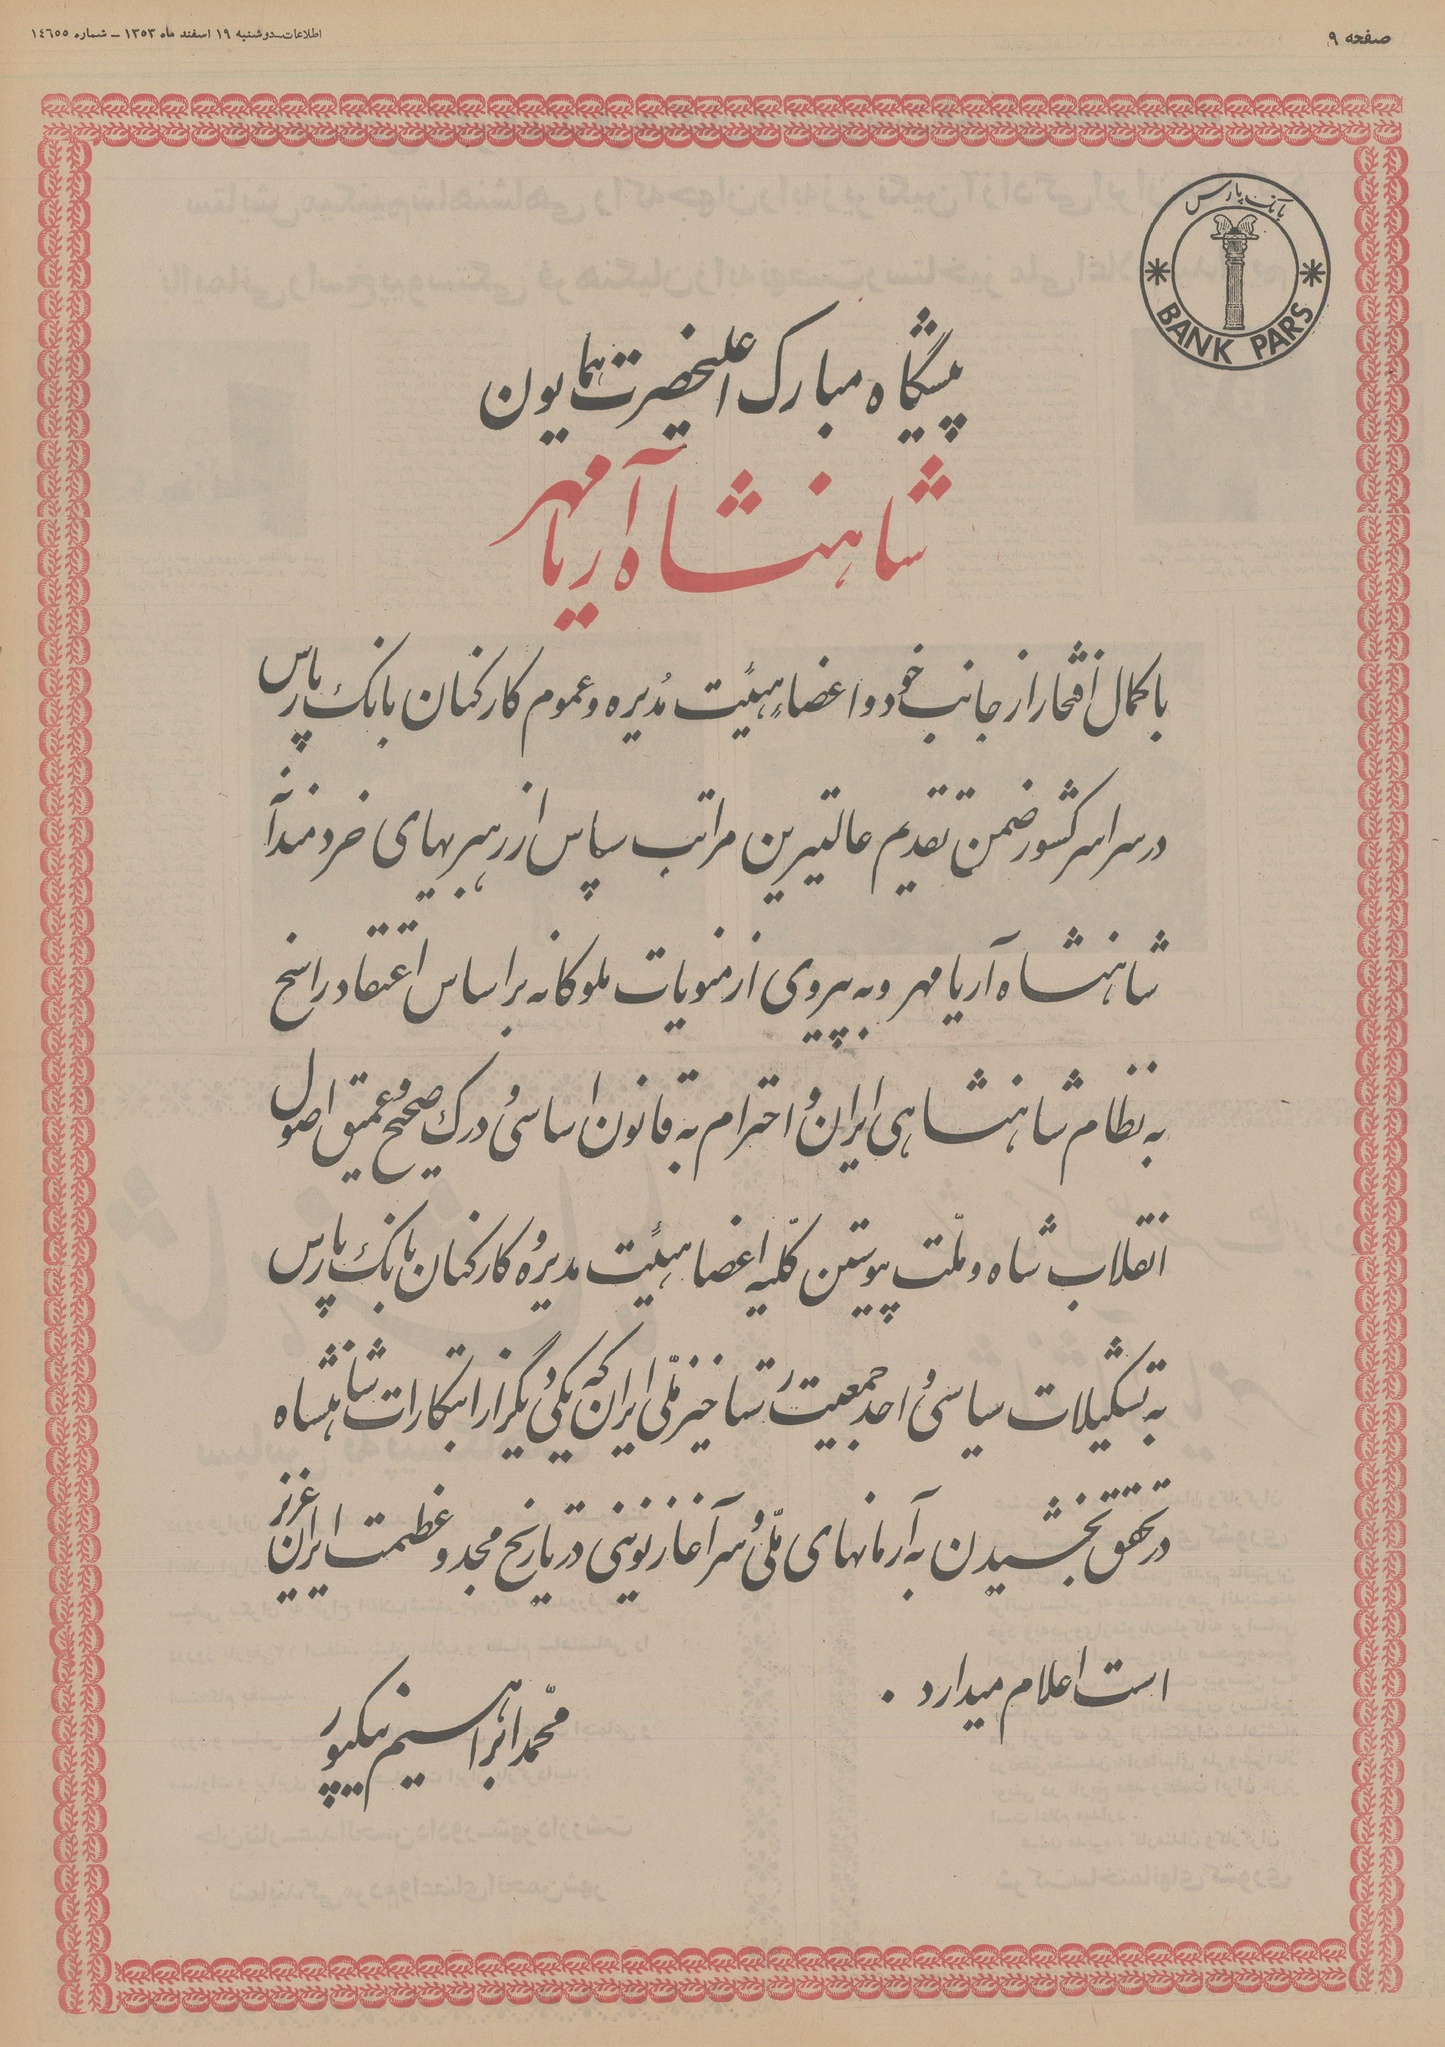 صفحه ۹
اطلاعات ـ دوشنبه ۱۹ اسفند ماه ۱۳۵۳ ـ شماره ۱٤٦٥٥
بانک پارس
BANK PARS
پیشگاه مبارک اعلیحضرت همایون
شاهنشاه آریامهر
با کمال افتخار از جانب خود و اعضاء هیئت مدیره و عموم کارکنان بانک پارس
در سراسر کشور ضمن تقدیم عالیترین مراتب سپاس از رهبریهای خردمندانه
شاهنشاه آریامهر و به پیروی از منویات ملوکانه بر اساس اعتقاد راسخ
به نظام شاهنشاهی ایران و احترام به قانون اساسی و درک صحیح و عمیق اصول
انقلاب شاه و ملّت پیوستن کلّیه اعضا هیئت مدیره و کارکنان بانک پارس
به تشکیلات سیاسی واحد جمعیت رستاخیز ملّی ایران که یکی دیگر از ابتکارات شاهنشاه
در تحقق بخشیدن به آرمانهای ملّی و سرآغاز نوینی در تاریخ مجد و عظمت ایران عزیز
است اعلام میدارد .
محمّد ابراهیم نیکپور